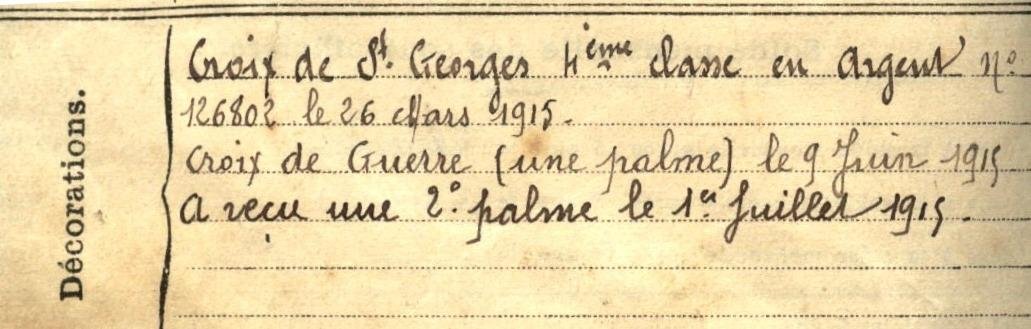 Décorations.
Croix de St. Georges 4ème classe en Argent n°
126802 le 26 Mars 1915.
Croix de Guerre (une palme) le 9 Juin 1915
A reçu une 2° palme le 1er Juillet 1915.